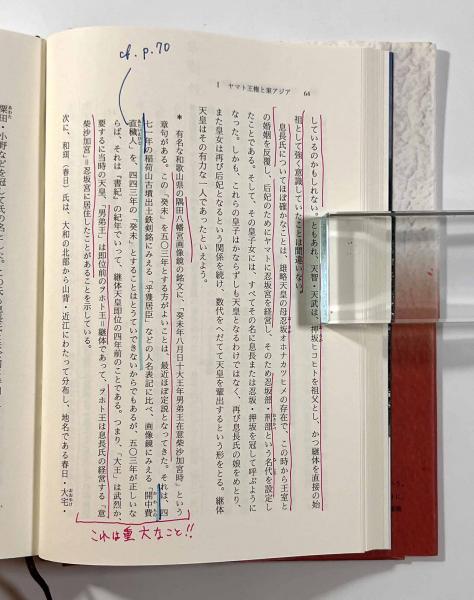 cf. p.70
I　ヤマト王権と東アジア　64
しているのかもしれない。ともあれ、天智・天武は、押坂ヒコヒトを祖父とし、かつ継体を直接の始
祖として強く意識していたことは間違いない。
息長氏についてほぼ確かなことは、雄略天皇の母忍坂オホナカツヒメの存在で、この時から王室と
の婚姻を反覆し、后妃のためにヤマトに忍坂宮を経営し、そのため忍坂部・刑部という名代を設定し
たことである。そして、その皇子女には、すべてその名に息長または忍坂・押坂を冠して呼ぶように
なった。しかも、これらの皇子はかならずしも天皇となるわけではなく、再び息長氏の娘をめとり、
また皇女は再び后妃となるという関係を続け、数代をへだてて天皇を輩出するという形をとる。継体
天皇はその有力な一人であったといえよう。
＊　有名な和歌山県の隅田八幡宮画像鏡の銘文に、「癸未年八月日十大王年男弟王在意柴沙加宮時」という
章句がある。この「癸未」を五〇三年とする方がよいことは、最近ほぼ定説となってきた。それは、四
七一年の稲荷山古墳出土鉄剣銘にみえる「乎獲居臣」などの人名表記に比べ、画像鏡にみえる「開中費
直穢人」を、四四三年の「癸未」とすることはとうていできないからでもあるが、五〇三年が正しいな
らば、それは『書紀』の紀年でいって、継体天皇即位の四年前のことである。つまり、「大王」は武烈か、
要するに当時の天皇、「男弟王」は即位前のヲホト王＝継体であって、ヲホト王は息長氏の経営する「意
柴沙加宮」＝忍坂宮に居住したことがあることを示している。
次に、和珥（春日）氏は、大和の北部から山背・近江にわたって分布し、地名である春日・大宅・
おおやけ
あわた
粟田・小野などを冠して氏の名とした。
これは重大なこと!!